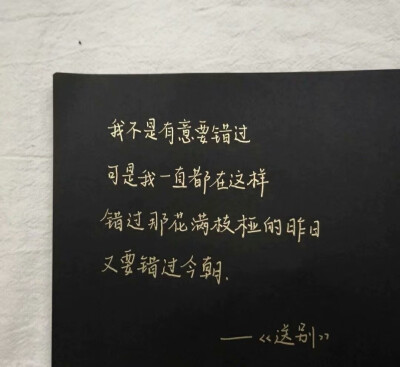 我不是有意要错过
可是我一直都在这样
错过那花满枝桠的昨日
又要错过今朝.
——《送别》